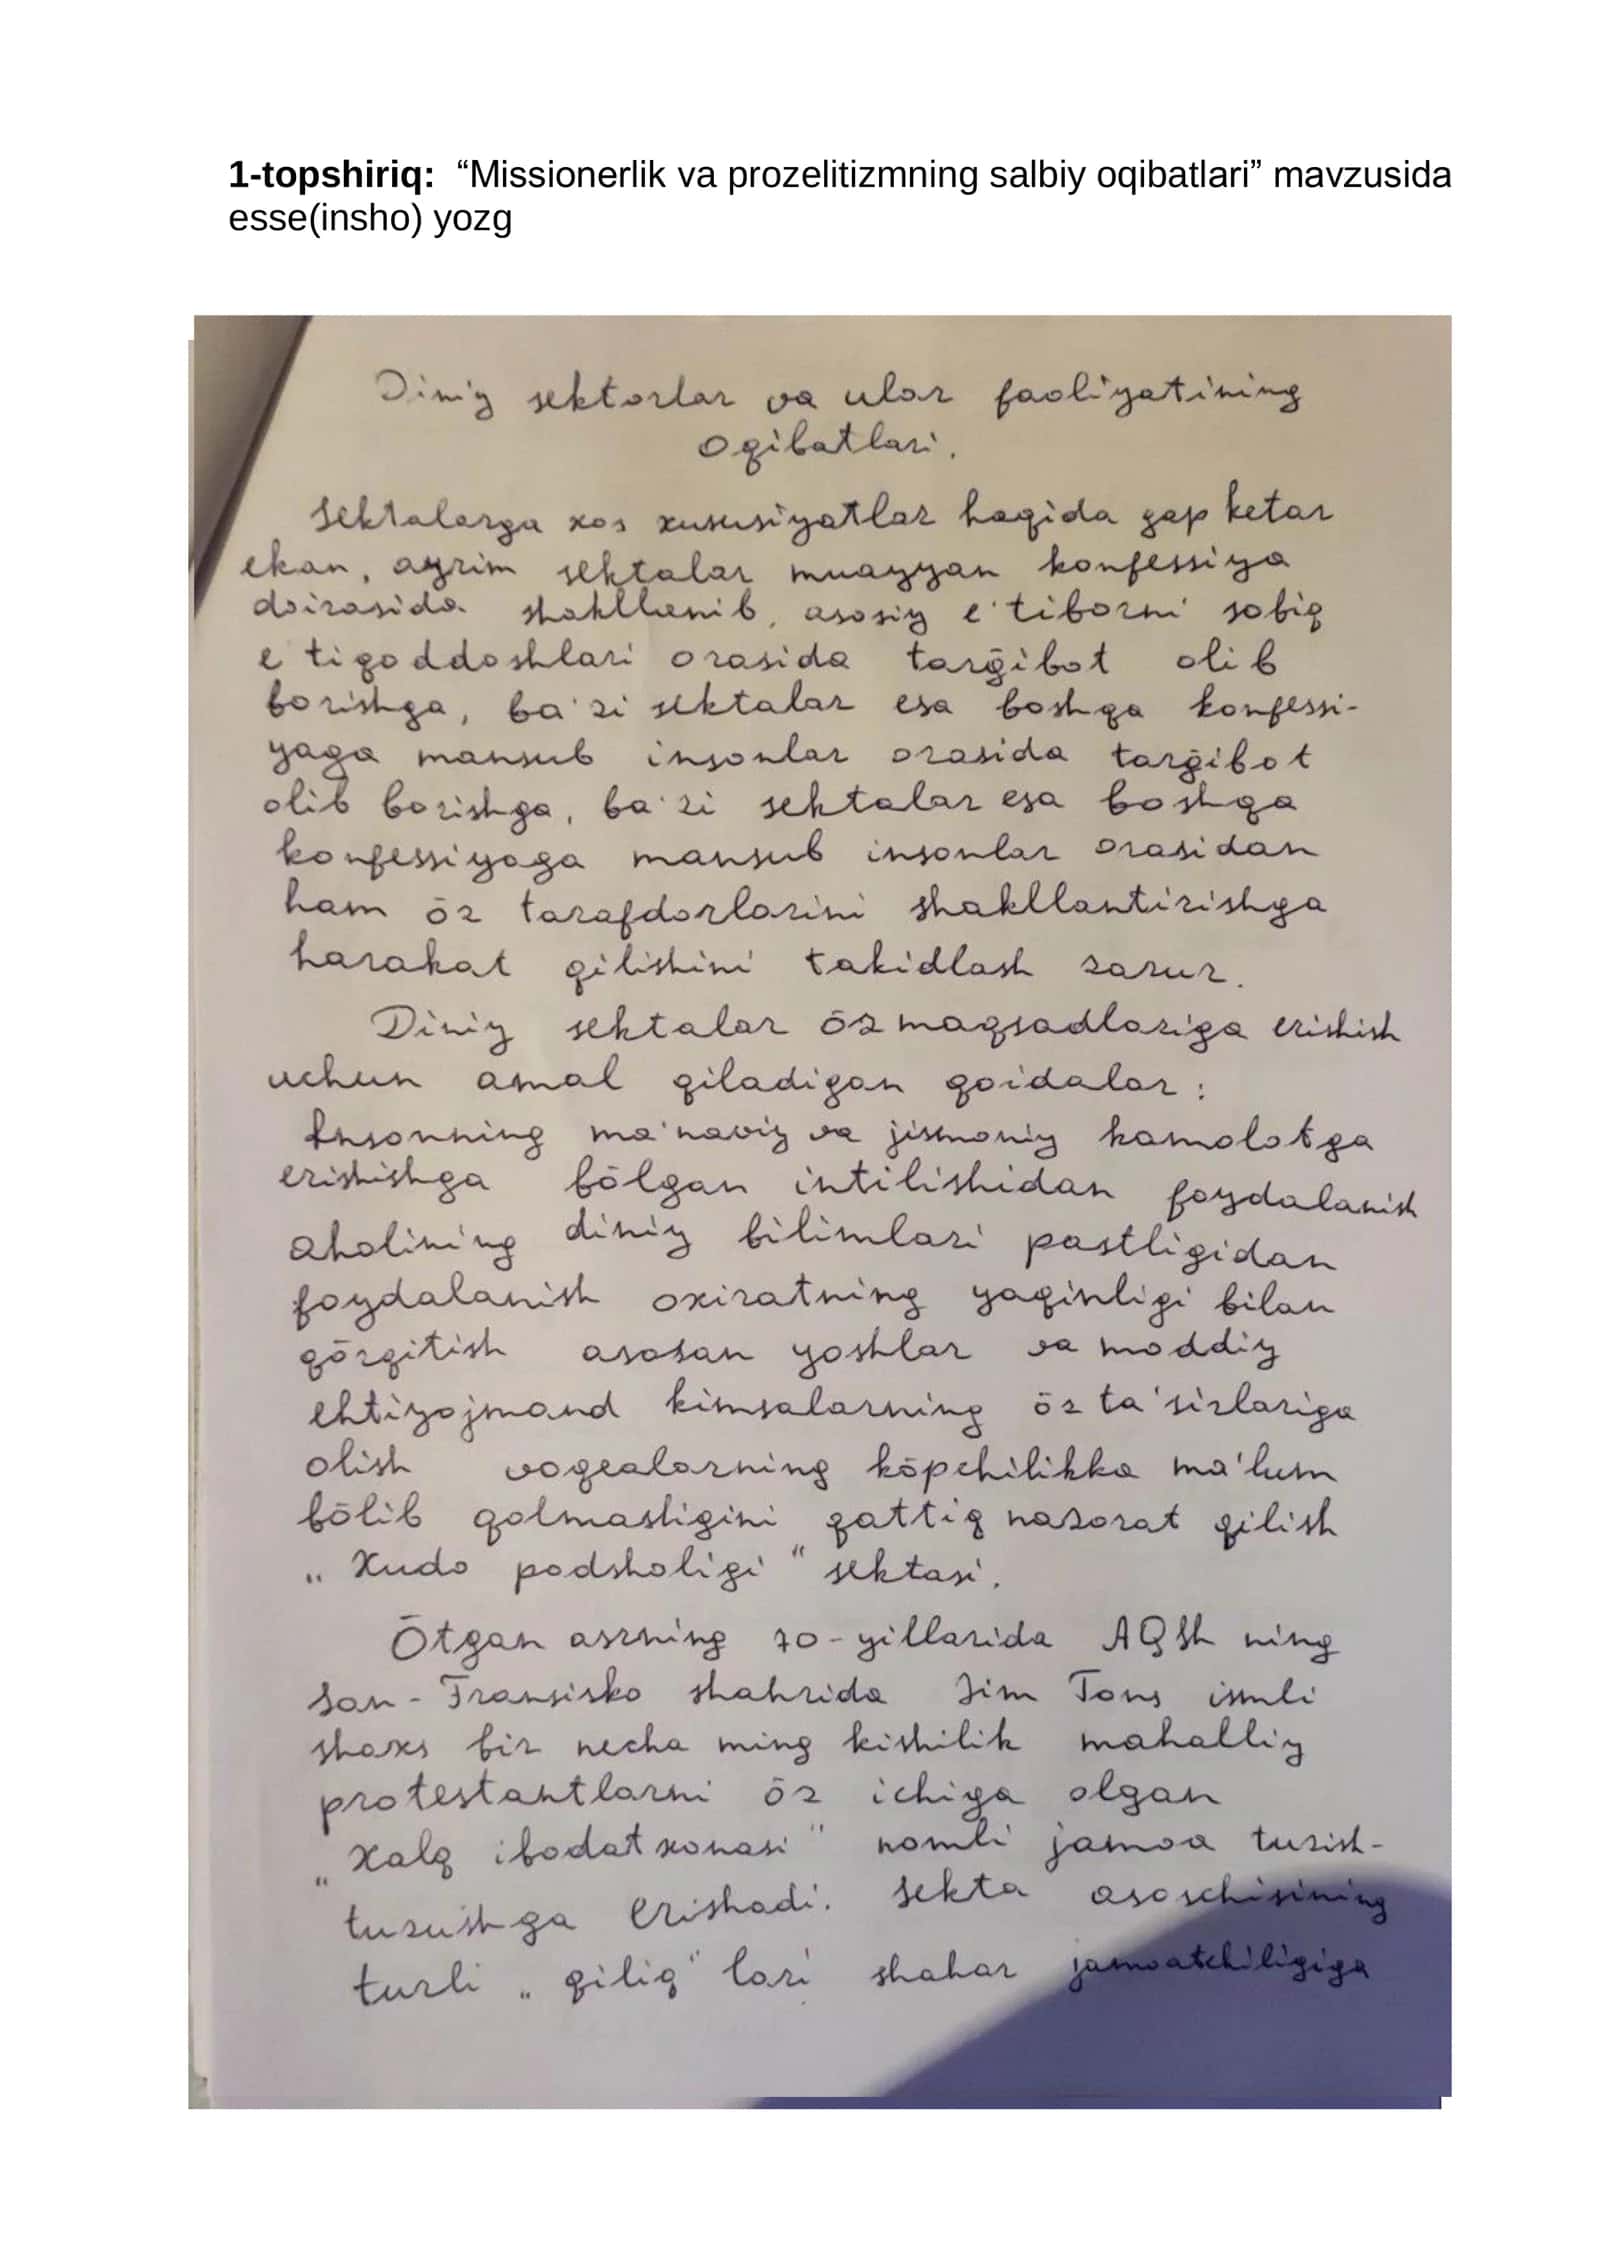 1-topshiriq: “Missionerlik va prozelitizmning salbiy oqibatlari” mavzusida
esse(insho) yozg
Diniy sektorlar va ular faoliyatining
oqibatlari.
Sektalarga xos xususiyatlar haqida gap ketar
ekan, ayrim sektalar muayyan konfessiya
doirasida shakllanib, asosiy e'tiborni sobiq
e'tiqoddoshlari orasida tarḡibot olib
borishga, ba'zi sektalar esa boshqa konfessi-
yaga mansub insonlar orasida tarḡibot
olib borishga, ba'zi sektalar esa boshqa
konfessiyaga mansub insonlar orasidan
ham ōz tarafdorlarini shakllantirishga
harakat qilishini takidlash zarur.
Diniy sektalar ōz maqsadlariga erishish
uchun amal qiladigan qoidalar:
Insonning ma'naviy va jismoniy kamolotga
erishishga bōlgan intilishidan foydalanish
aholining diniy bilimlari pastligidan
foydalanish oxiratning yaqinligi bilan
qōrqitish asosan yoshlar va moddiy
ehtiyojmand kimsalarning ōz ta'sirlariga
olish voqealarning kōpchilikka ma'lum
bōlib qolmasligini qattiq nazorat qilish
„Xudo podsholigi“ sektasi.
Ōtgan asrning 70-yillarida AQSh ning
San-Fransisko shahrida Jim Tons ismli
shaxs bir necha ming kishilik mahalliy
protestantlarni ōz ichiga olgan
„Xalq ibodatxonasi“ nomli jamoa tuzish-
tuzushga erishadi. Sekta asoschisining
turli „qiliq“lari shahar jamoatchiligiga